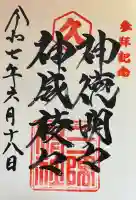 参拝記念
神徳明々
神威稜々
令和七年六月十八日
久